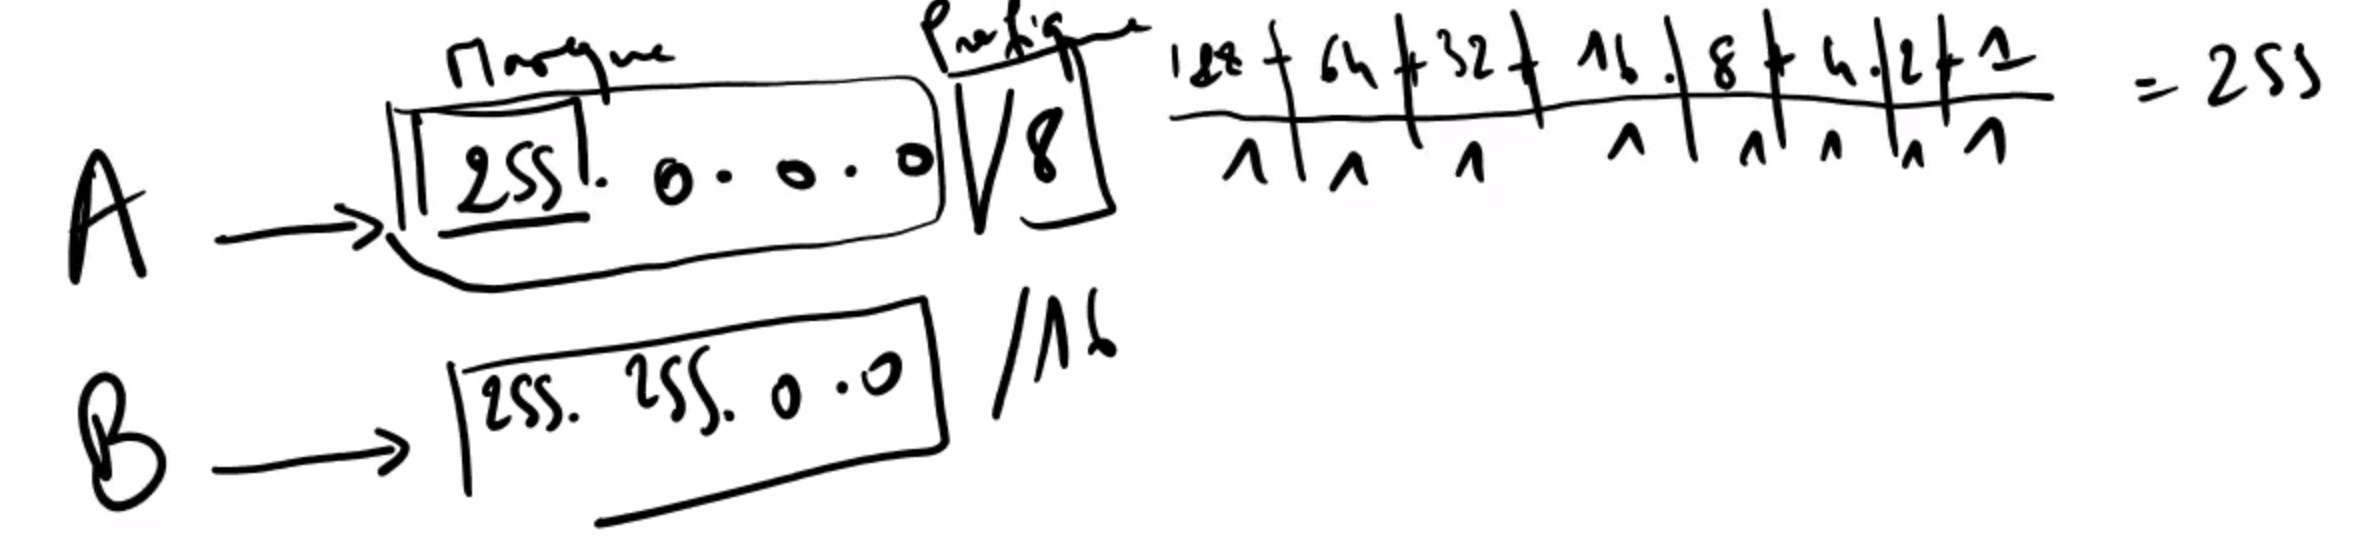 Masque Prefique
A → 255. 0. 0. 0 /8 128 + 64 + 32 + 16. 8 + 4. 2 + 1 = 255
1 1 1 1 1 1 1 1
B → 255. 255. 0. 0 /16